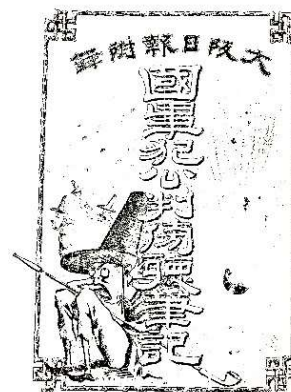 大阪日報附錄
國事犯公判傍聽筆記